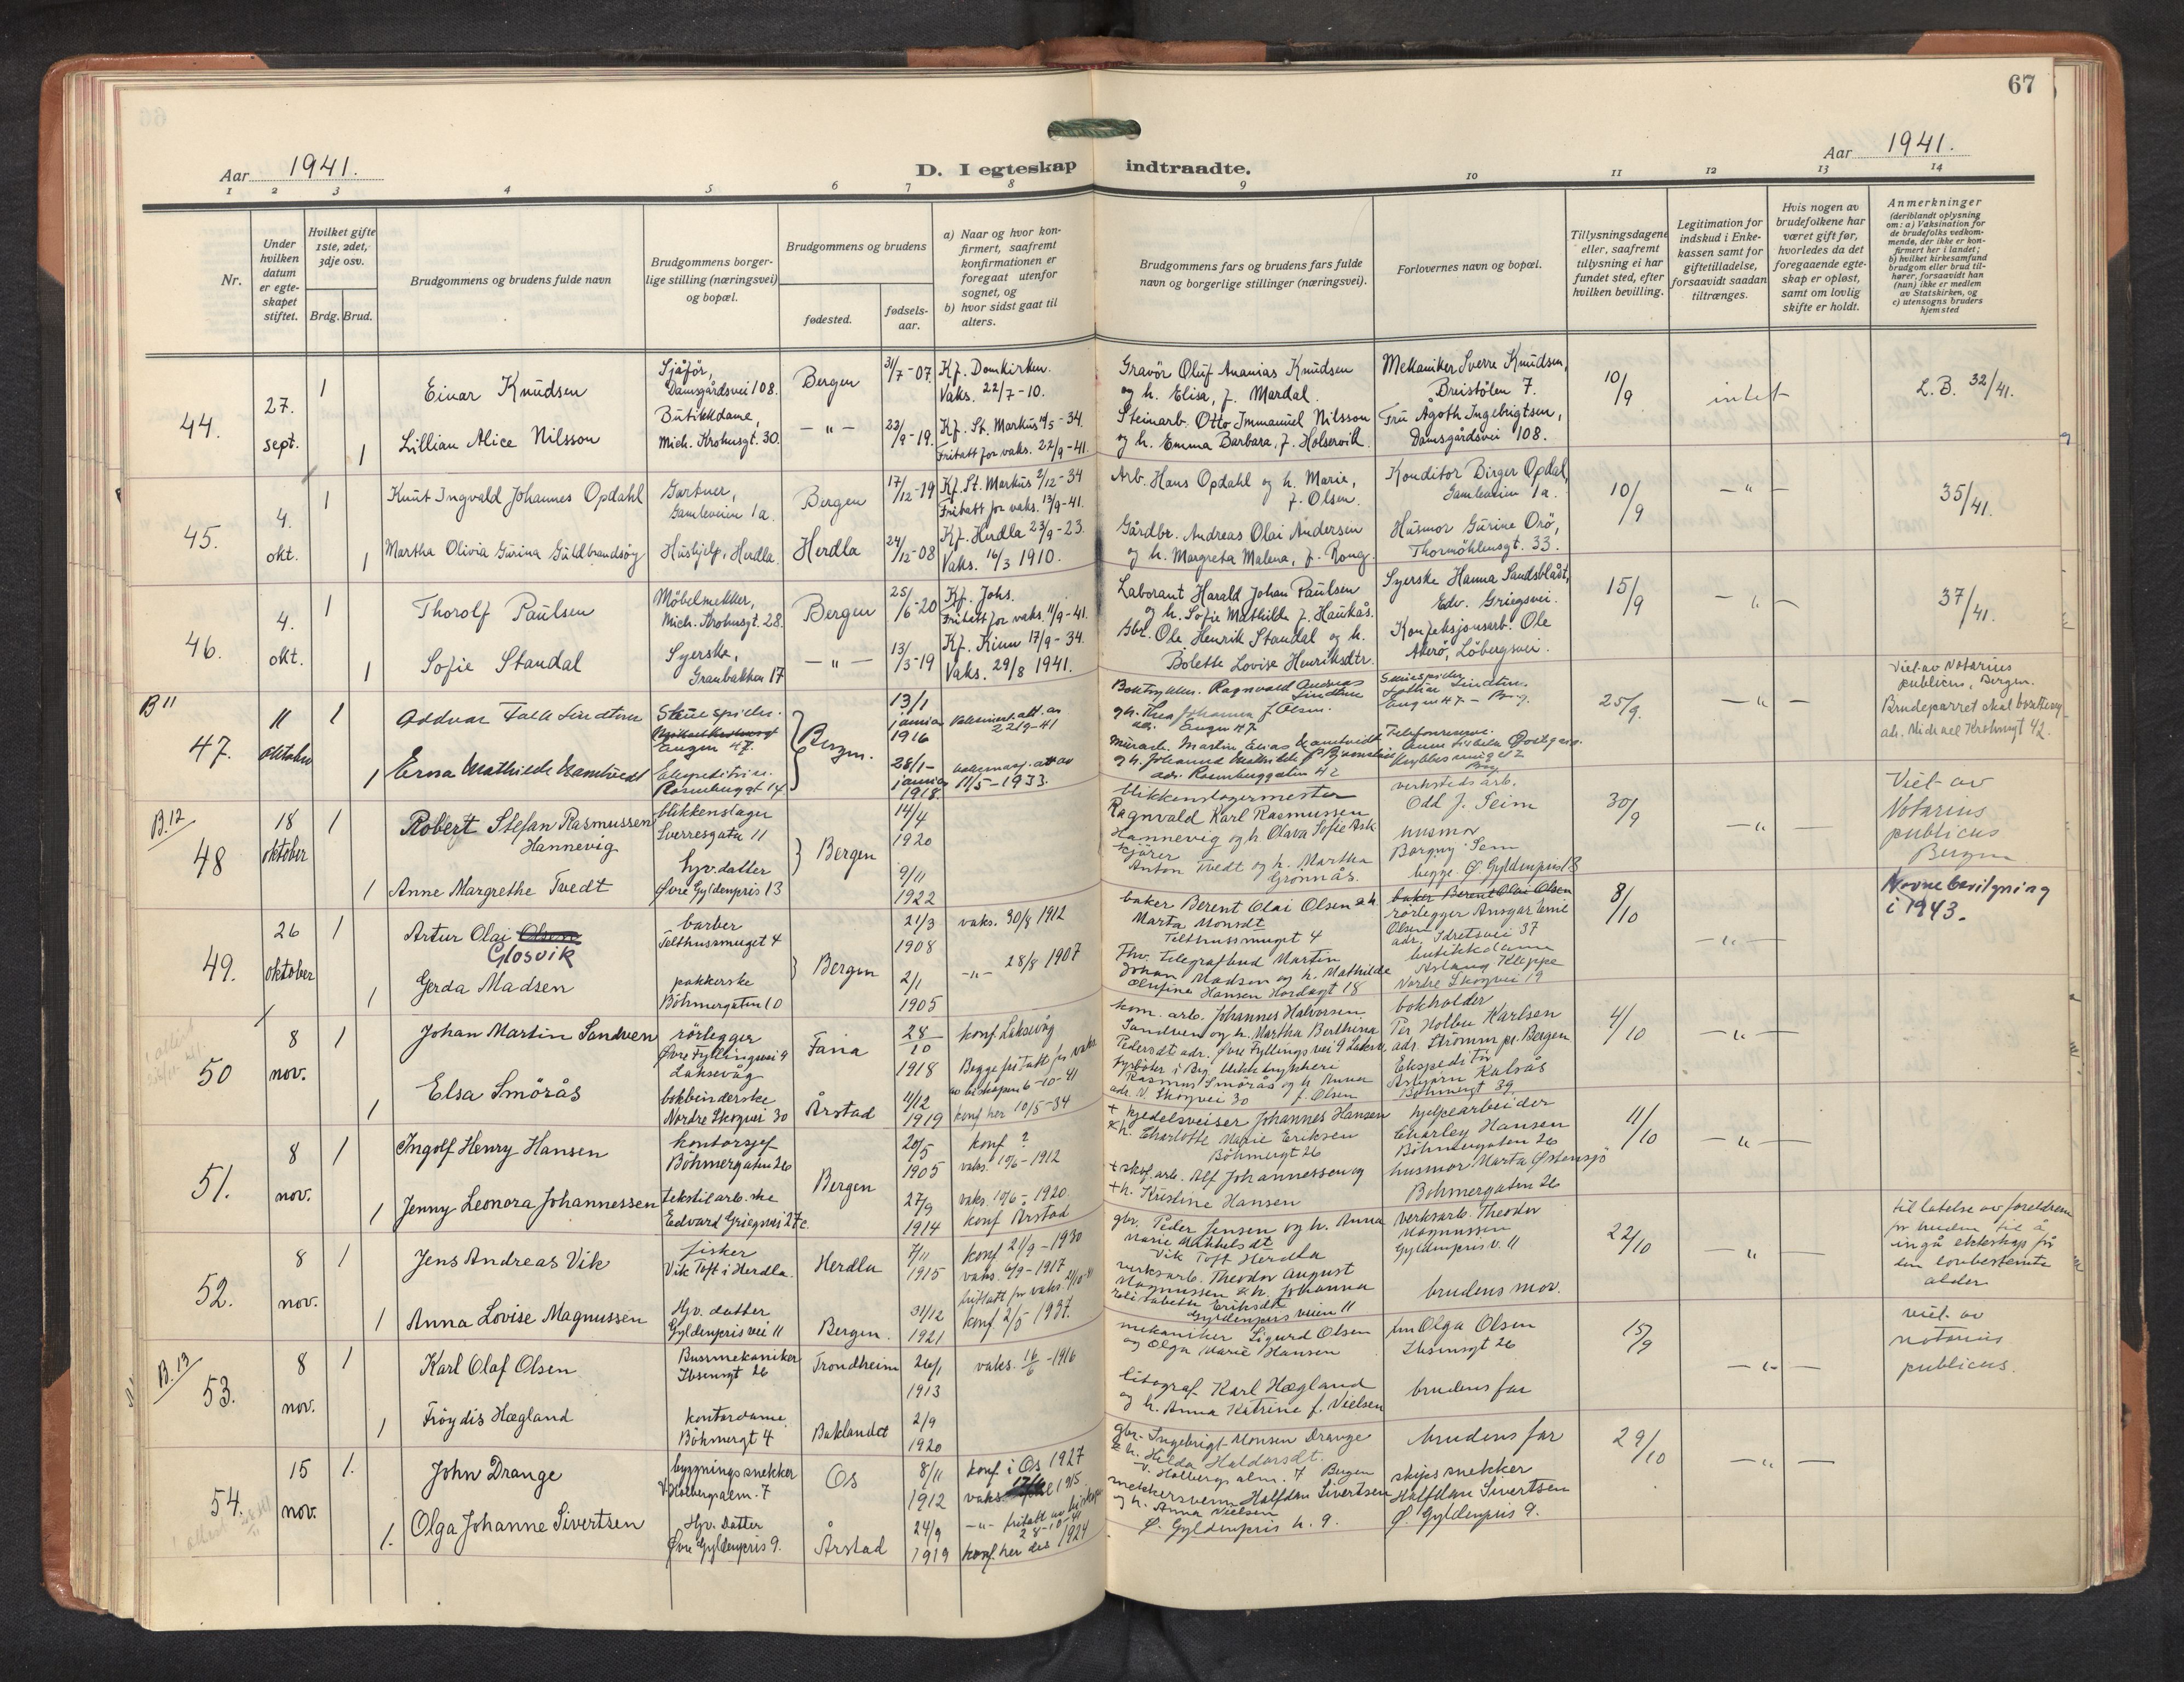 67
Aar 1941.
D. I egteskap indtraadte.
Aar 1941.
1 2 3 4 5 6 7 8 9 10 11 12 13 14
Nr.
Under hvilken datum er egteskapet stiftet.
Hvilket gifte 1ste, 2det, 3dje osv.
Brdg. Brud.
Brudgommens og brudens fulde navn
Brudgommens borgerlige stilling (næringsvei) og bopæl.
Brudgommens og brudens
fødested.
fødselsaar.
a) Naar og hvor konfirmert, saafremt konfirmationen er foregaat utenfor sognet, og
b) hvor sidst gaat til alters.
Brudgommens fars og brudens fars fulde navn og borgerlige stillinger (næringsvei).
Forlovernes navn og bopæl.
Tillysningsdagene eller, saafremt tillysning ei har fundet sted, efter hvilken bevilling.
Legitimation for indskud i Enkekassen samt for giftetilladelse, forsaavidt saadan tiltrænges.
Hvis nogen av brudefolkene har været gift før, hvorledes da det foregaaende egteskap er opløst, samt om lovlig skifte er holdt.
Anmerkninger
(deriblandt oplysning om: a) Vaksination for de brudefolks vedkommende, der ikke er konfirmert her i landet; b) hvilket kirkesamfund brudgom eller brud tilhører, forsaavidt han (hun) ikke er medlem av Statskirken, og c) utensogns bruders hjemsted
44.
27. sept.
1
Einar Knudsen
Sjåfør,
Damsgårdsvei 108.
Bergen
31/7-07.
Kf. Domkirken.
Vaks. 22/7-10.
Gravör Oluf Ananias Knudsen
og h. Elisa, f. Mardal.
Mekaniker Sverre Knudsen,
Breistölen 7.
10/9
intet
L.B. 32/41.
1
Lillian Alice Nilsson
Butikkdame,
Mich. Krohnsgt. 30.
— " —
22/9-19.
Kf. St. Markus 5-34.
Fritatt for vaks. 22/9-41.
Steinarb. Otto Immanuel Nilsson
og h. Emma Barbara, f. Holservik.
Fru Ågoth Ingebrigtsen,
Damsgårdsvei 108.
45.
4. okt.
1
Knut Ingvald Johannes Opdahl
Gartner,
Gamleveien 1a.
Bergen
17/12-19
Kf. St. Markus 2/12-34
Fritatt for vaks. 13/9-41.
Arb. Hans Opdahl og h. Marie,
f. Olsen.
Konditor Birger Opdal,
Gamleveien 1a.
10/9
— " —
35/41.
1
Martha Olivia Gurina Guldbrandsøy
Hushjelp, Herdla.
Herdla
24/12-08
Kf. Herdla 23/9-23.
Vaks. 16/3 1910.
Gårdbr. Andreas Olai Andersen
og h. Margreta Malena, f. Rong.
Husmor Gurine Orö,
Thormöhlensgt. 33.
46.
4. okt.
1
Thorolf Paulsen
Möbelsnekker,
Mich. Krohnsgt. 28.
Bergen
25/6-20
Kf. Johs.
Fritatt for vaks. 11/9-41.
Laborant Harald Johan Paulsen
og h. Sofie Mathilde f. Haukås.
Syerske Hanna Sandsbladt,
Edv. Griegsvei.
15/9
— " —
37/41.
1
Sofie Standal
Syerske,
Granbakken 17
— " —
13/3-19
Kf. Kinn 17/9-34.
Vaks. 29/8 1941.
Gbr. Ole Henrik Standal og h.
Bolette Lovise Henriksdtr.
Konfeksjonsarb. Ole
Akerö, Löbergsvei.
B 11
47.
11 oktober
1
Oddvar Falk Lindtner
Skuespiller.
Engen 47.
Bergen.
13/1
1916
Boktrykker. Ragnvald Andreas
Lindtner
og h. Thea Johanna f Olsen.
adr. Engen 47
Skuespiller
Engen 47 — Brg.
25/9.
— " —
Viet av Notarius
publicus, Bergen.
Brudeparret skal
adr. Michael Krohnsgt 42.
1
Erna Mathilde Hamtvedt
Ekspeditrise.
Rosenberggt 14
28/1-
1918.
11/5-1933.
Murarb. Martin Elias Hamtvedt
adr. Rosenberggaten 42
B.12
48
18 oktober
1
Robert Stefan Rasmussen
Hannevig
blikkenslager
Sverresgate 11
Bergen
14/4
1920
blikkenslagermester
Ragnvald Karl Rasmussen
Hannevig og h Olava Sofie Ask
verkstedsarb.
Odd J. Seim
30/9
— " —
Viet av
Notarius
publicus
Bergen
1
Anne Margrethe Tvedt
hjv. datter
Øvre Gyldenpris 13
9/11
1922
kjörer
Anton Tvedt og h. Martha
Grönnås.
husmor
Borgny Seim
begge. Ø. Gyldenpris 13
49.
26 oktober
1
Artur Olai Olsen
Glosvik
barber
Telthussmuget 4
Bergen
21/3
1908
vaks. 30/8 1912
baker Berent Olai Olsen & h.
Marta Monsdt
Telthussmuget 4
baker Berent Olai Olsen
rörlegger Ansgar Emil
Olsen
adr. Idretsvei 37
8/10
— " —
Navnebevilgning
i 1943.
1
Gerda Madsen
pakkerske
Böhmergaten 10
2/1
1905
— " — 28/8 1907
Fhv. telegrafbud Martin
Johan Madsen og h. Mathilde
Olufine Hansen Hordagt 18
butikkdame
Aslaug Kleppe
Nordre Skogvei 19
50
8 nov.
1
Johan Martin Sandven
rörlegger
Øvre Fyllingsvei 9
Laksevåg
Fana
28/10
1918
konf Laksevåg
Begge fritatt for vaks
av biskopen 6-10-41
kom. arb. Johannes Halvorsen
Sandven og h. Martha Berthina
Pedersdt adr. Øvre Fyllingsvei 9 Laksev.
bokholder
Per Holbu Karlsen
adr. Strömm pr. Bergen
4/10
— " —
1
Elsa Smörås
bokbinderske
Nordre Skogvei 30
Årstad
11/12
1919
konf her 10/5-34
Rasmus Smörås og h Anna
adr. N. Skogvei 30 f. Olsen
Ekspeditör
Asbjörn Kalsås
Böhmergt 39
51.
8 nov.
1
Ingolf Henry Hansen
kontorsjef
Böhmergaten 26
Bergen
20/5
1905
konf ?
vaks. 10/6-1912
+ kjedelsveiser Johannes Hansen
& h. Charlotte Marie Eriksen
Böhmergt 26
hjelpearbeider
Charley Hansen
Böhmergaten 26
11/10
— " —
1
Jenny Leonora Johannessen
tekstilarb.ske
Edvard Griegsvei 27c.
27/9
1914
vaks. 10/6-1920.
konf Årstad
+ skof. arb. Alf Johannessen og
+ h. Kristine Hansen
husmor Marta Østensjö
Böhmergaten 26
52.
8 nov.
1
Jens Andreas Vik
fisker
Vik Toft i Herdla.
Herdla
7/11
1915
konf 21/9-1930
vaks. 6/9-1917
gbr. Peder Jensen og h. Anna
Marie Mikkelsdt
Vik Toft Herdla
verksarb. Theodor
Magnussen
Gyldenpris v. 11
22/10
— " —
tillatelse av foreldrene
for bruden til å
ingå ekteskap før
den lovbestemte
alder
1
Anna Lovise Magnussen
Hjv. datter
Gyldenpris vei 11
Bergen.
31/12
1921
fritatt for vaks 21/10-41
konf 2/5 1937.
verksarb. Theodor August
Magnussen & h. Johanna
Elisabeth Eriksdt
Gyldenpris veien 11
brudens mor.
B.13
53.
8 nov.
1
Karl Olaf Olsen
Bussmekaniker
Ibsensgt 26
Trondheim
26/1
1913
vaks. 16/6-1916
mekaniker Sigurd Olsen
og Olga Marie Hansen
fru Olga Olsen
Ibsensgt 26
15/9
— " —
viet av
notarius
publicus.
1
Fröydis Hægland
kontordame.
Böhmergt 4
Baklandet
2/9
1920
litograf Karl Hægland
og h. Anna Katrine f. Nielsen
brudens far
54.
15 nov.
1.
John Drange
bygningssnekker
V. Holbergsalm. 7
Os
8/11
1912
konf i Os 1927
gbr. Ingebrigt Monsen Drange
& h. Hilda Haldorsdt.
V. Holbergsalm. 7 Bergen
brudens far
29/10
— " —
1.
Olga Johanne Sivertsen
Hjv. Datter
Øvre Gyldenpris 9.
Årstad
24/9
1919
— " — fritatt av biskopen
28-10-41
konf. her des 1924
Halfdan Sivertsen
og h. Anna Nielsen
Ø. Gyldenpris h. 9.
skipssnekker
Halfdan Sivertsen
Ø. Gyldenpris 9.